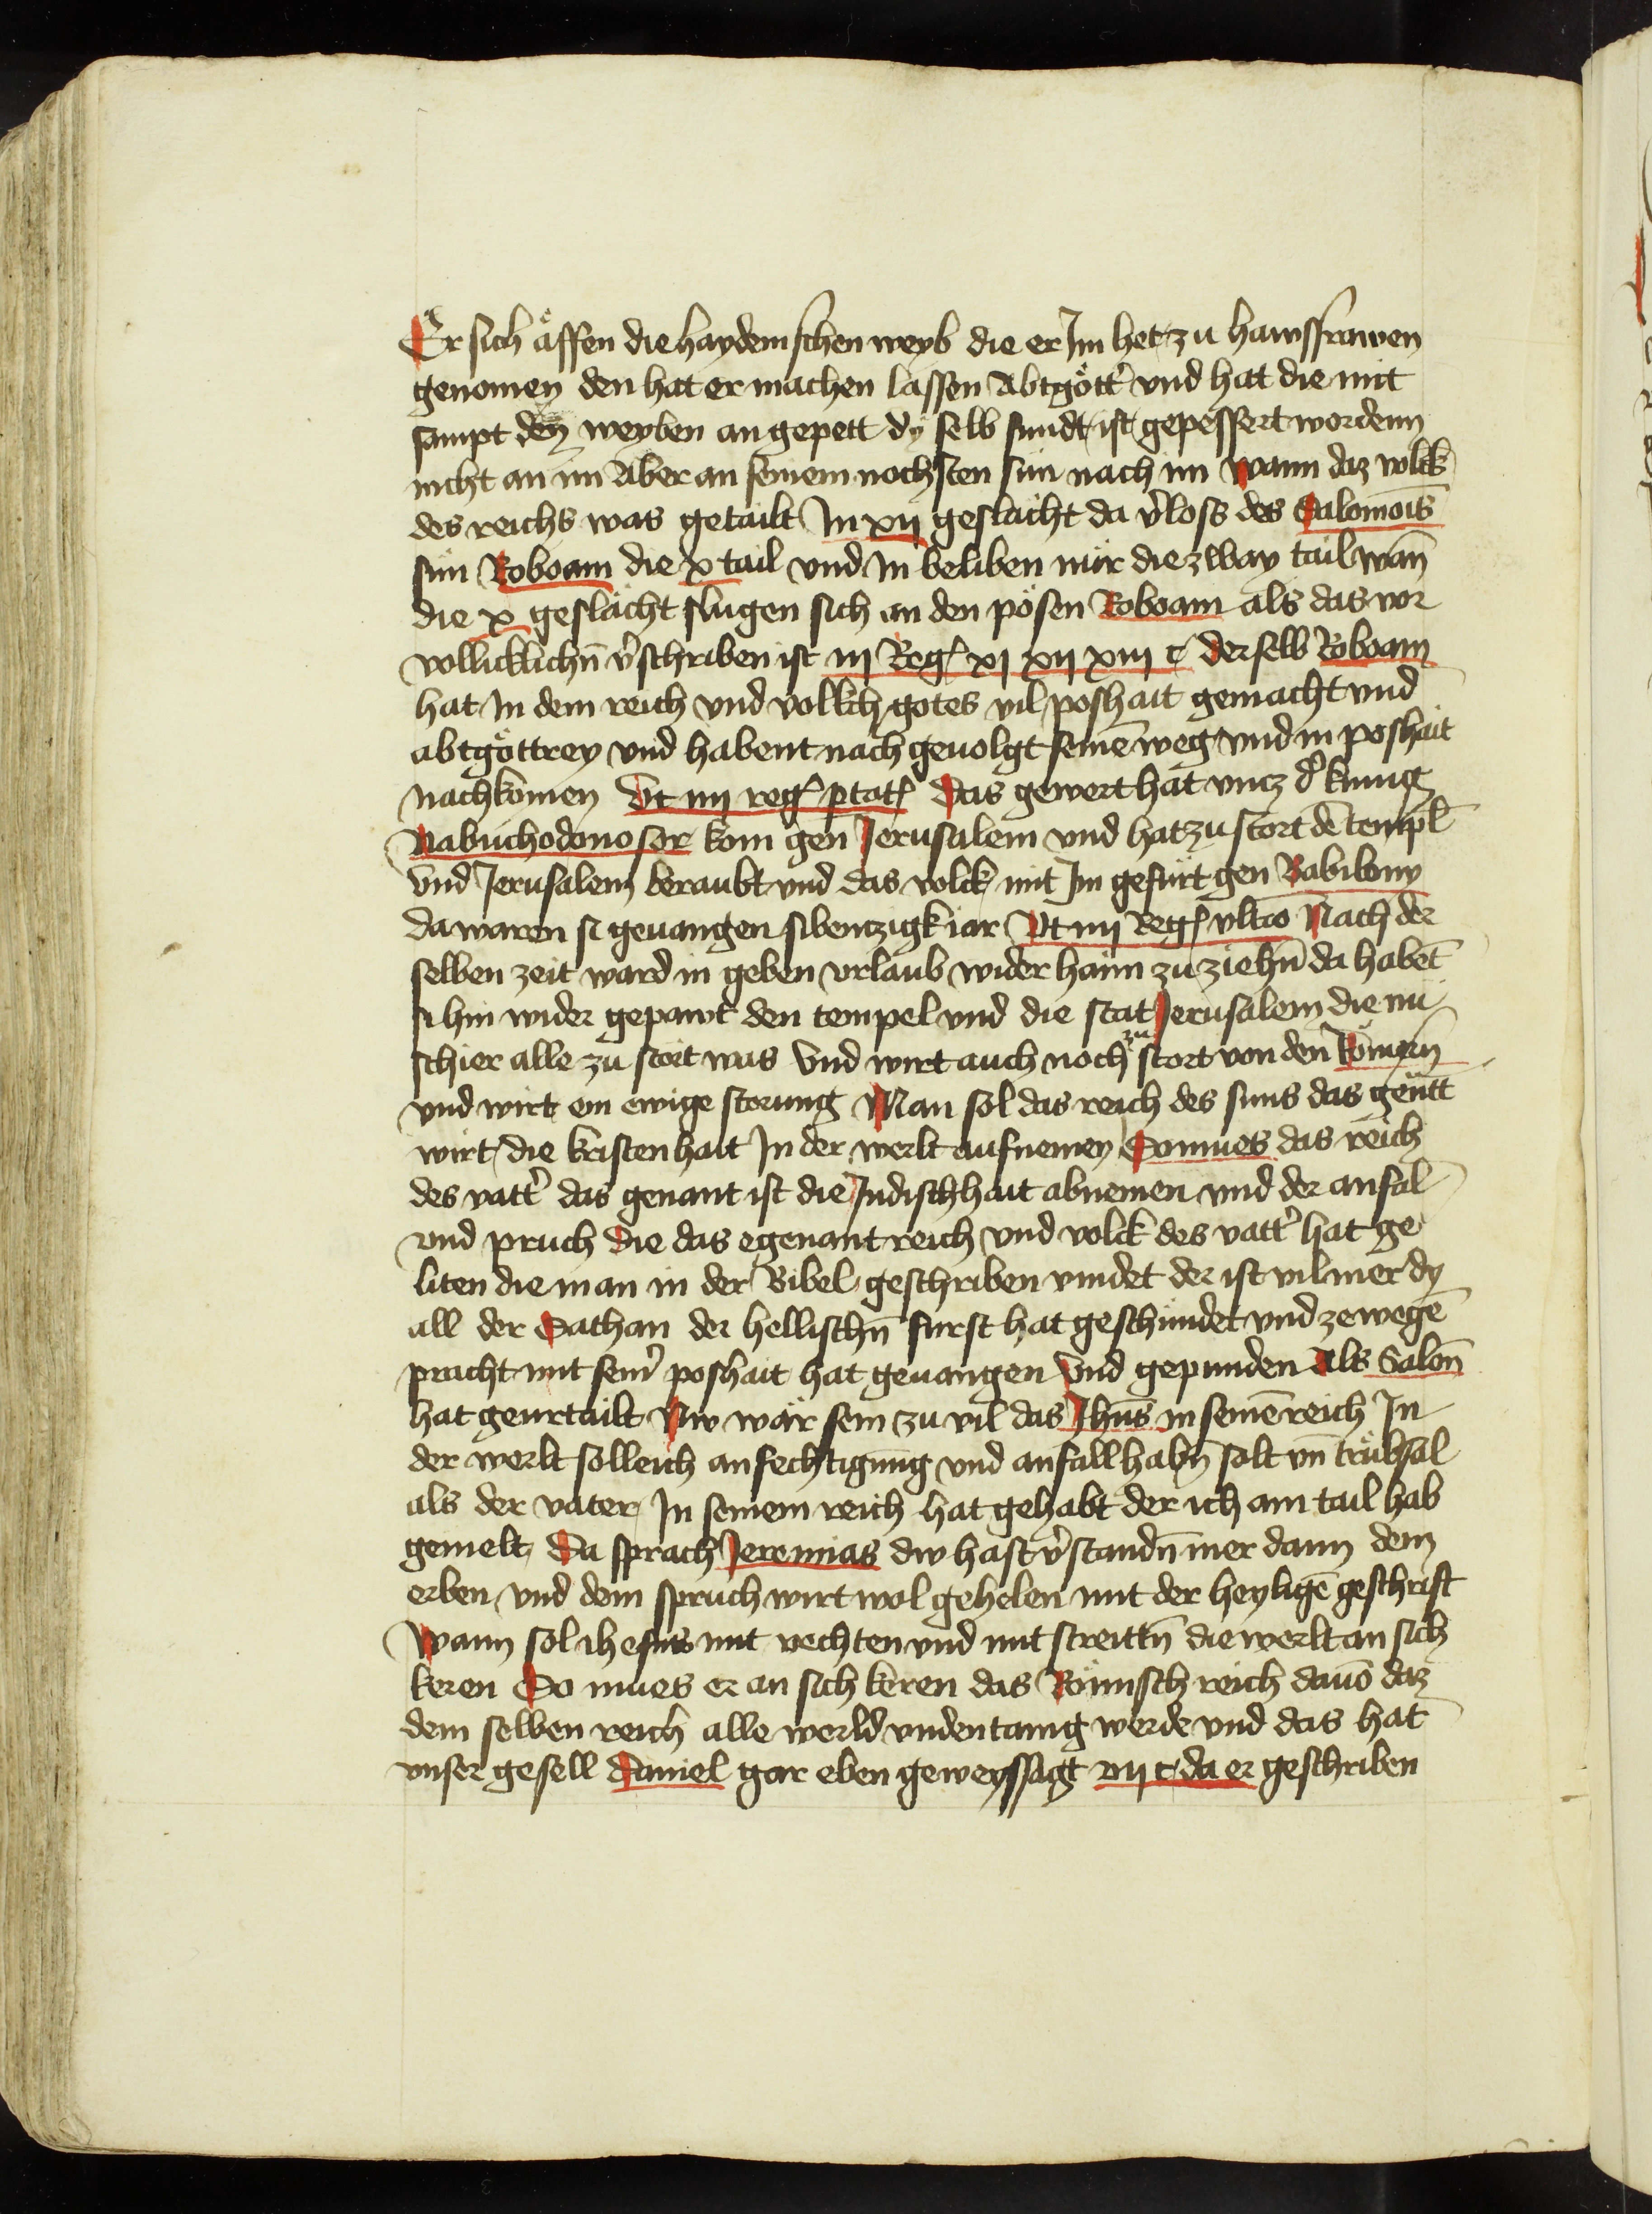 Er sich äffen die haydemschen weyb die er Im het zu hawsfrawen
genomen den hat er machen lassen Abtgött̾ vnd hat die mit
sampt den weyben an gepett dy selb sundt ist gepessert wordenn
nicht an im Aber an seinem nochsten sün nach im Wann daz volck
des reichs was getailt In xij geslächt da v̾loss des Salomōis
sün Roboam die x tail vnd In beliben nür die zway tail wañ
die x geslächt slugen sich an den pösen Roboam als das vor
vollicklichn̄ v̾schriben ist iij Reg̾ xj xij xiij c̾ derselb Roboam
hat In dem reich vnd volkch gotes vil poshait gemacht vnd
abtgöttrey vnd habent nach geuolgt seinē weg vnd in poshait
nachkomen Vt iiij reg̾ p̱tat̾ Das gewert hat vncz d̾ kunig
Nabuchodonosor kom gen Jerusalem vnd hat zu stört dē templ̄
Vnd Jerusalem beraubt vnd das volck mit Im gefürt gen Babilony
da waren si geuangen sibenczigk iar Vt iiij Reg̾ vltīo Nach der
selben zeit ward in geben vrlaub wider haim zu ziehn̄ da habēt
si hin wider gepawt den tempel vnd die stat Jerusalem die nu
schier alle zu stört was Vnd wirt auch noch zu stort von den Römern̄
vnd wirt ein ewige storung Man sol das reich des suns das genn̄t
wirt die kristenhait In der werlt aufnemen So mues das reich
des vatt̾ das genant ist die Judischhait abnemen vnd der anfal
vnd pruch die das egenant reich vnd volck des vatt̾ hat ge
liten die man in der Bibel geschriben vindet der ist vil mer dy
all der Sathan der hellischn̄ furst hat geschündet vnd zewegē
pracht mit sein̾ poshait hat geuangen Vnd gepunden Als Salon̄
hat geurtailt Nw wär sein zu vil das Jhūs in seinē reich In
der werlt solleich anfechtigung vnd anfall habn̄ solt vn̄ trübsal
als der vater In seinem reich hat gehabt der ich am tail hab
gemelt Da sprach Jeremias dw hast v̾standn̄ mer dann dem
erben vnd dem spruch wirt wol gehelen mit der heyligē geschrift
Wann sol ihesus mit vechten vnd mit streittn̄ die werlt an sich
keren So mues er an sich keren das Römisch reich dauō daz
dem selben reich alle werld vndentanig werde vnd das hat
vnser gesell Daniel gar eben geweyssagt vij c da er geschriben